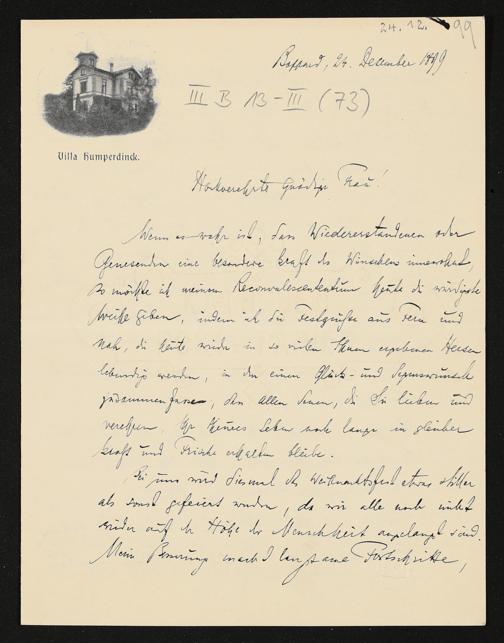 24.12. 99
Boppard, 24. Dezember 1899
III B 13-III (73)
Villa Humperdinck.
Hochverehrte gnädige Frau!
Wenn es wahr ist, dass Wiedererstandenen oder
Genesenden eine besondere Kraft des Wünschens innewohnt,
so möchte ich meinem Reconvalescententum heute die würdigste
Weihe geben, indem ich die Festgrüsse aus Fern und
Nah, die heute wieder in so vielen Ihnen ergebenen Herzen
lebendig werden, in den einen Glück- und Segenswunsch
zusammenfasse, den allen denen, die Sie lieben und
verehren, Ihr theures Leben noch lange in gleicher
Kraft und Frische erhalten bleibe.
Bei uns wird diesmal das Weihnachtsfest etwas stiller
als sonst gefeiert werden, da wir alle noch nicht
wieder auf der Höhe der Menschheit angelangt sind.
Meine Besserung macht langsame Fortschritte,